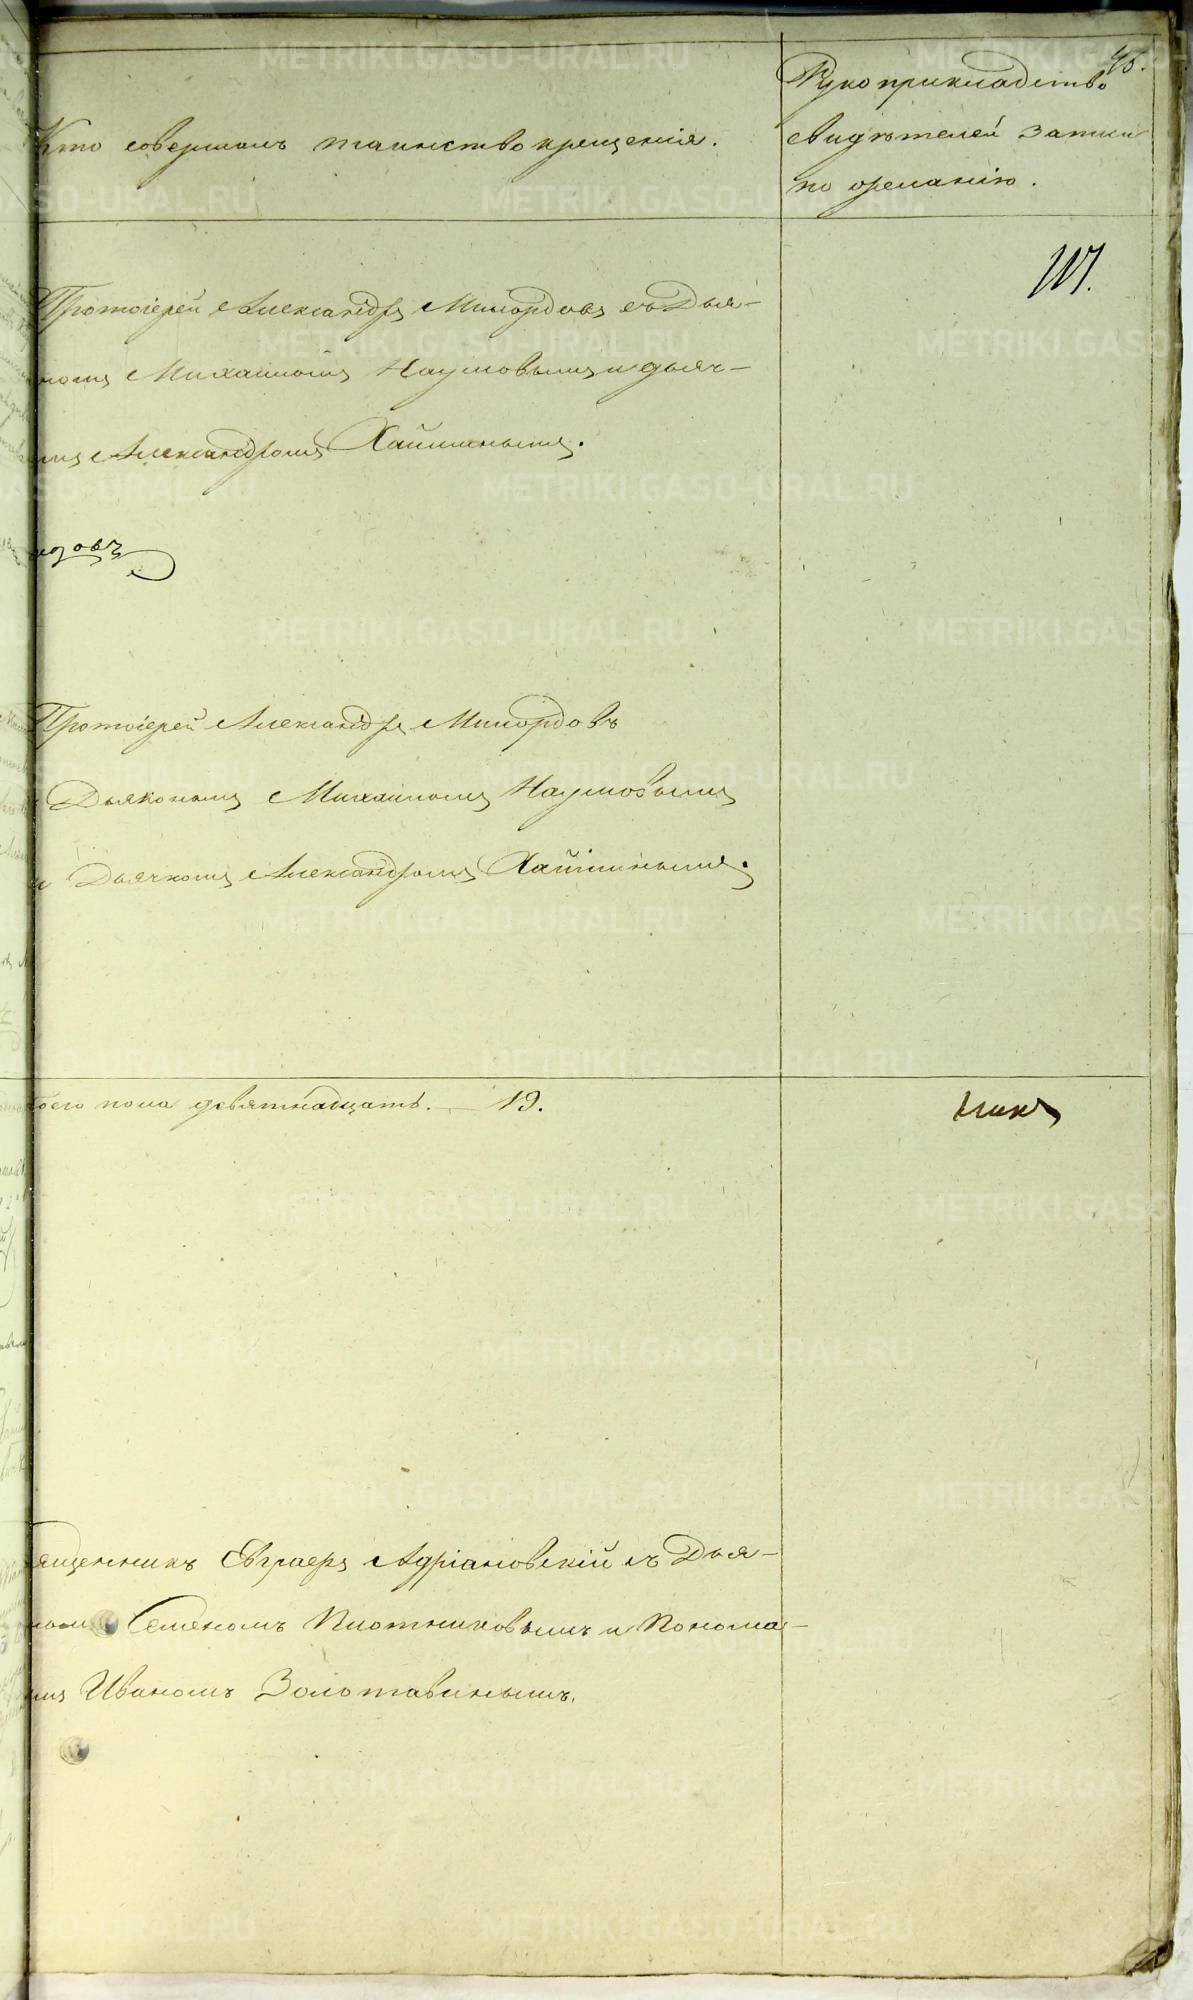 46.
Кто совершалъ таинство крещенія.
Рукоприкладство
свидѣтелей записи
по желанію.
Протоіерей Александръ Милордовъ съ Дья-
номъ Михаиломъ Наумовымъ и дьяч-
Александромъ Хайминымъ.
Протоіерей Александръ Милордовъ
Дьякономъ Михаиломъ Наумовымъ
и Дьячкомъ Александромъ Хайминымъ.
пола девятнадцать. — 19.
Священникъ Евграфъ Адріановскій съ Дья-
Семеномъ Плотниковымъ и Понома-
Иваномъ Золотавинымъ.
METRIKI.GASO-URAL.RU